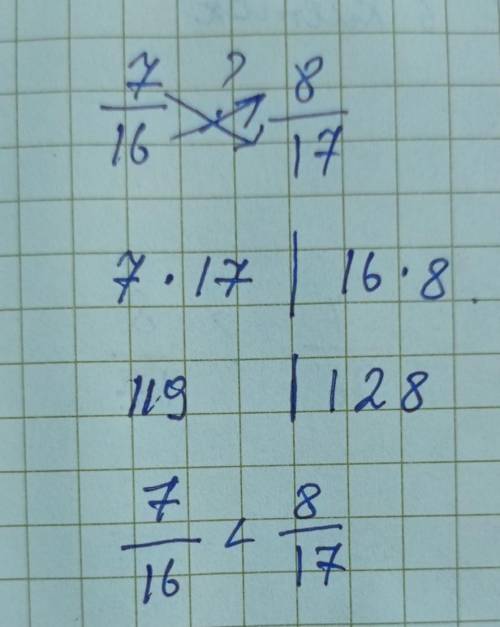 7/16 ? 8/17
7 · 17 | 16 · 8
119 | 128
7/16 < 8/17